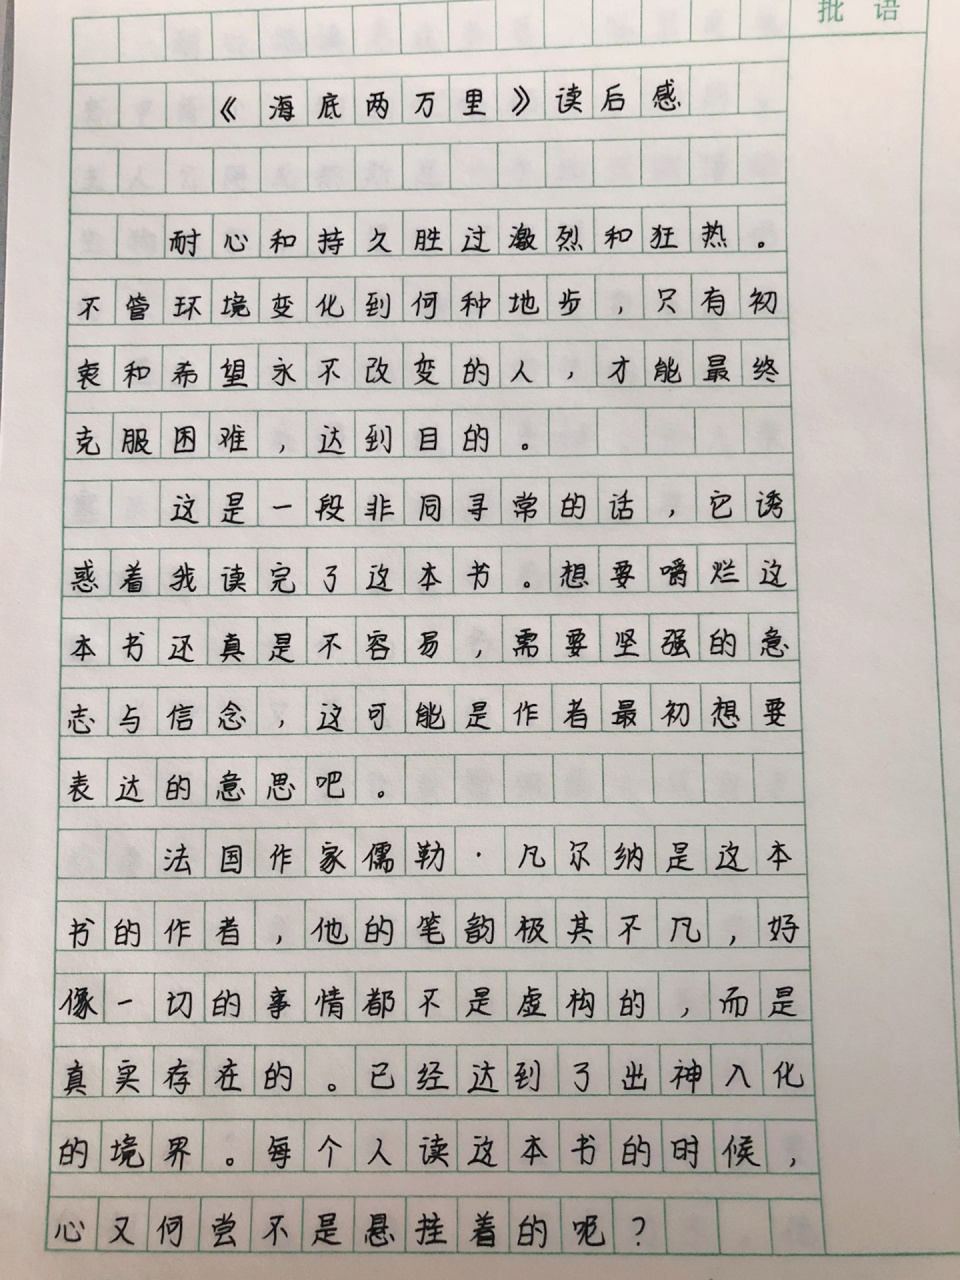 批 语
《海底两万里》读后感
耐心和持久胜过激烈和狂热。
不管环境变化到何种地步，只有初
衷和希望永不改变的人，才能最终
克服困难，达到目的。
这是一段非同寻常的话，它诱
惑着我读完了这本书。想要嚼烂这
本书还真是不容易，需要坚强的意
志与信念，这可能是作者最初想要
表达的意思吧。
法国作家儒勒·凡尔纳是这本
书的作者，他的笔韵极其不凡，好
像一切的事情都不是虚构的，而是
真实存在的。已经达到了出神入化
的境界。每个人读这本书的时候，
心又何尝不是悬挂着的呢？